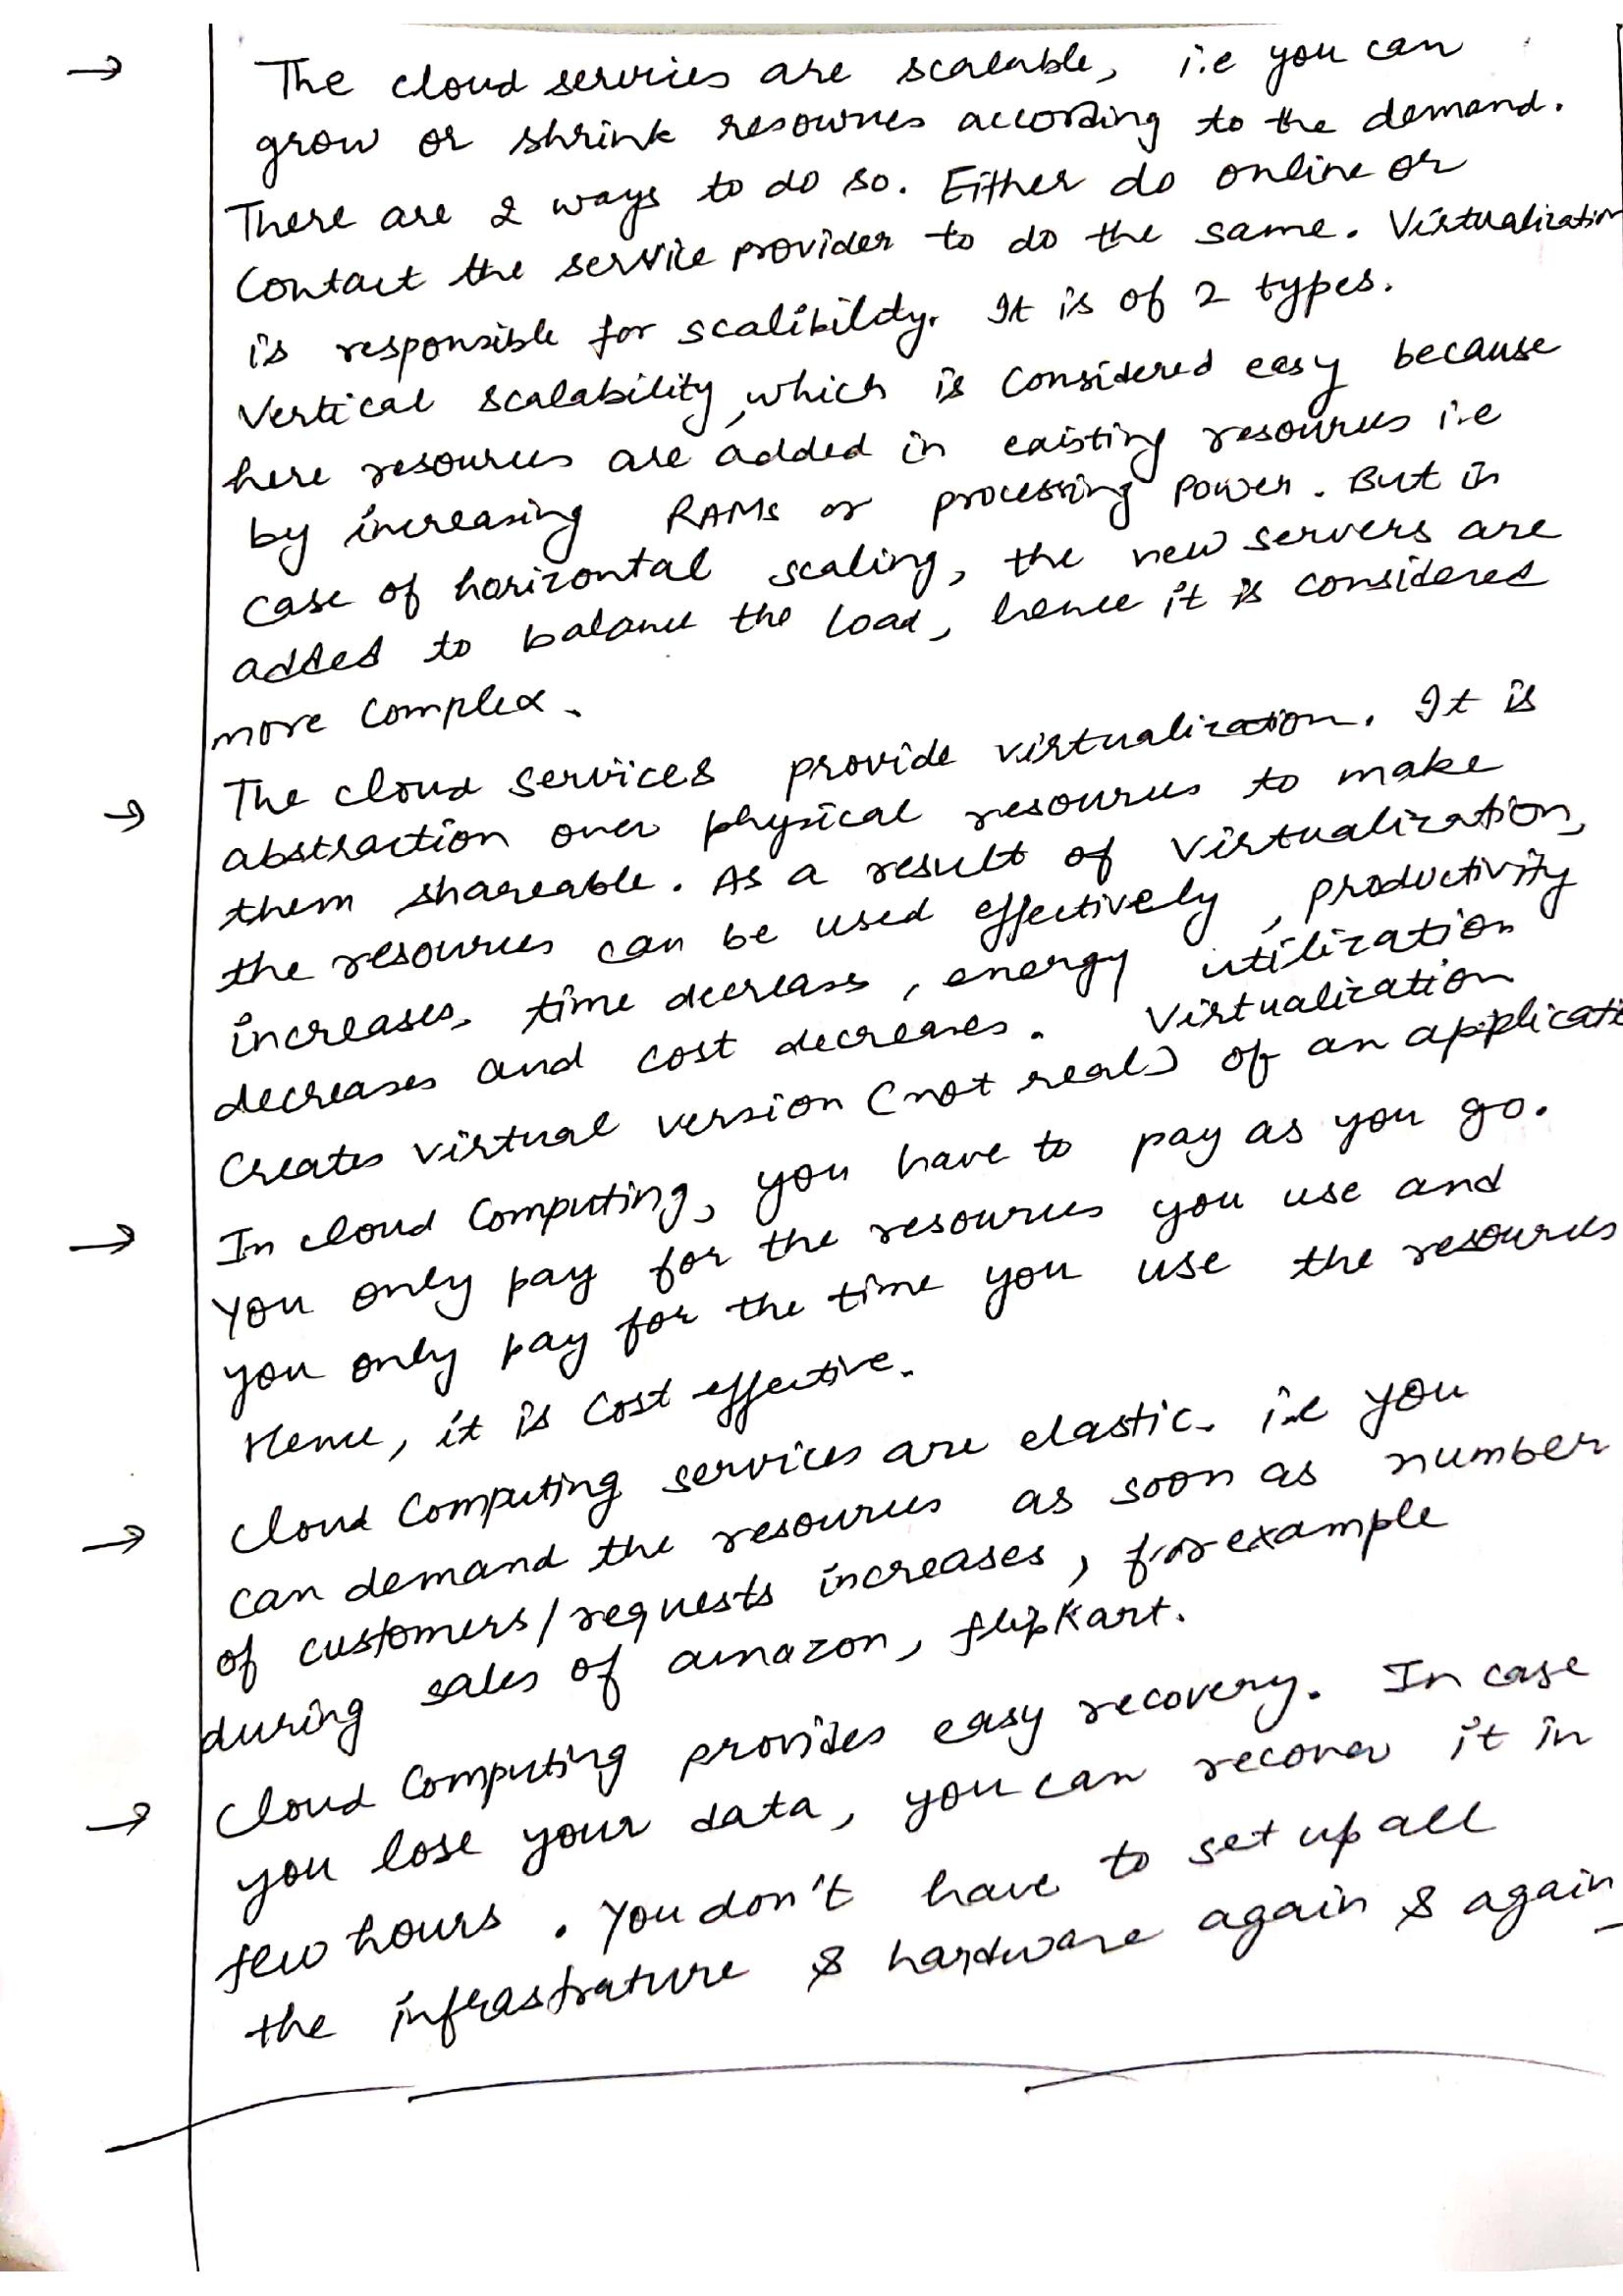 → The cloud services are scalable, i.e you can
grow or shrink resources according to the demand.
There are 2 ways to do so. Either do online or
Contact the service provider to do the same. Virtualization
is responsible for scalibility. It is of 2 types.
Vertical scalability, which is considered easy because
here resources are added in existing resources i.e
by increasing RAMs or processing power. But in
case of horizontal scaling, the new servers are
added to balance the load, hence it is considered
more complex.
→ The cloud services provide virtualization. It is
abstraction over physical resources to make
them shareable. As a result of virtualization,
the resources can be used effectively, productivity
increases, time decreases, energy utilization
decreases and cost decreases. Virtualization
Creates virtual version (not real) of an applicati
→ In cloud computing, you have to pay as you go.
You only pay for the resources you use and
you only pay for the time you use the resources
Hence, it is cost effective.
→ Cloud Computing services are elastic. i.e you
can demand the resources as soon as number
of customers/requests increases, for example
during sales of amazon, flipkart.
→ Cloud Computing provides easy recovery. In case
you lose your data, you can recover it in
few hours. You don't have to set up all
the infrastrature & hardware again & again